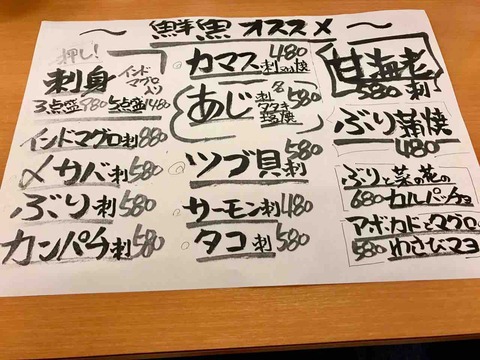 ～ 鮮黒 オススメ ～
押し!
刺身 インドマグロ入り
3点盛980 5点盛1480
インドマグロ刺880
〆サバ刺580
ぶり刺580
カンパチ刺580
カマス480
刺 or 焼
あじ 各580
刺 タタキ 塩焼
ツブ貝刺580
サーモン刺480
タコ刺580
甘海老
580 刺
ぶり蒲焼
480
ぶりと菜の花の
680 カルパッチョ
アボカドとマグロの
580 わさびマヨ